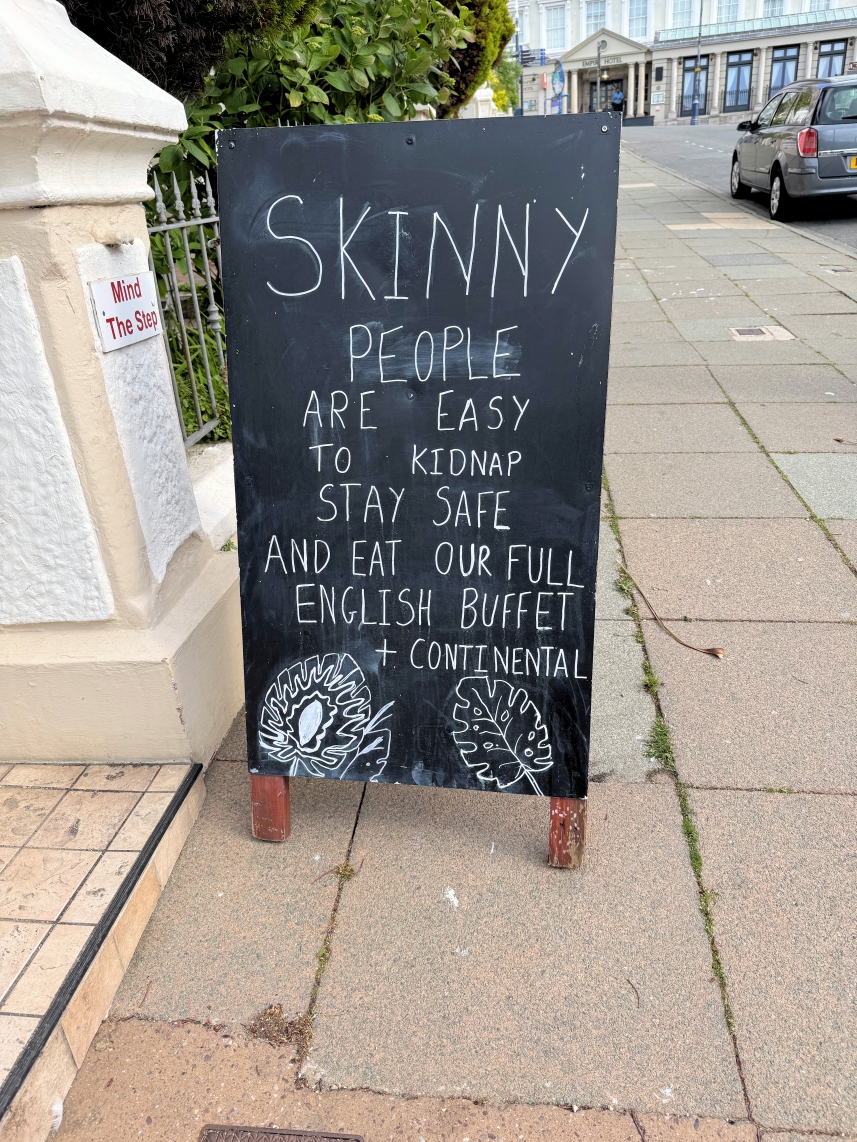 EMPIRE HOTEL
SKINNY
PEOPLE
ARE EASY
TO KIDNAP
STAY SAFE
AND EAT OUR FULL
ENGLISH BUFFET
+ CONTINENTAL
Mind
The Step